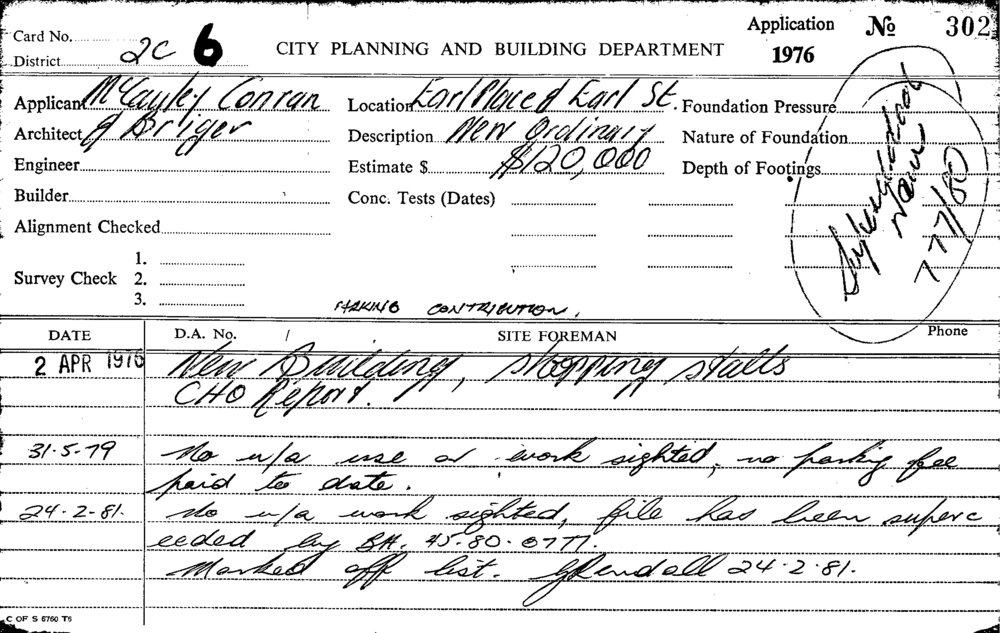 Card No. Application No 302
District 2C 6 CITY PLANNING AND BUILDING DEPARTMENT 1976
Applicant McCauley Conran Location Earl Place & Earl St. Foundation Pressure
Architect G Briger Description New Ordinary Nature of Foundation
Engineer Estimate $ $120,000 Depth of Footings
Builder Conc. Tests (Dates)
Alignment Checked
1.
Survey Check 2.
3.
now
777/80
PARKING CONTRIBUTION.
DATE D.A. No. / SITE FOREMAN Phone
2 APR 1976 New Building, shopping stalls
CHO Report.
31.5.79 No u/a use or work sighted, no parking fee
paid to date.
24.2.81. No u/a work sighted, file has been superc
eeded by BA. 45.80.0777.
Marked off list. 24.2.81.
C OF S 5760 T6